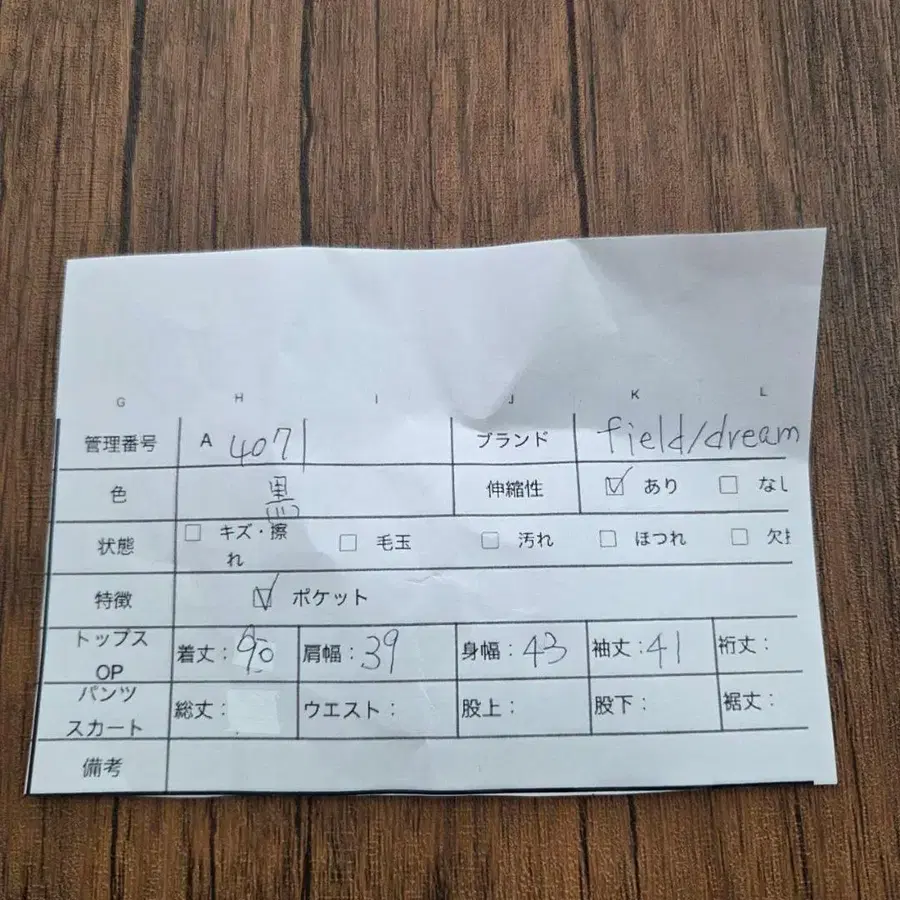 G H I J K L
管理番号 A 407 ブランド field/dream
色 黒 伸縮性 ☑ あり ☐ なし
状態 ☐ キズ・擦れ ☐ 毛玉 ☐ 汚れ ☐ ほつれ ☐ 欠
特徴 ☑ ポケット
トップス OP 着丈: 90 肩幅: 39 身幅: 43 袖丈: 41 裄丈:
パンツ スカート 総丈: ウエスト: 股上: 股下: 裾丈:
備考